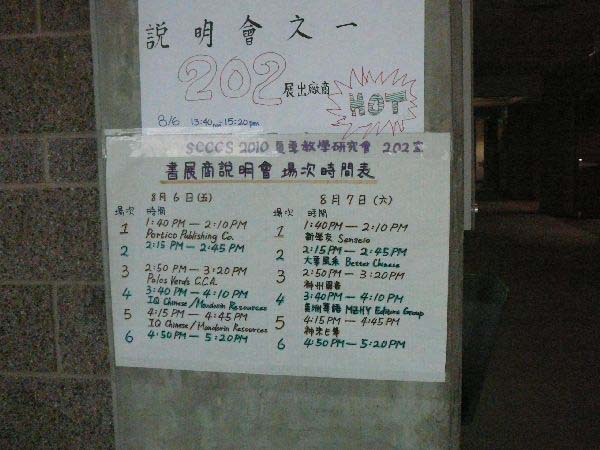 說明會之一
202 展出廠商 HOT
8/6 13:40pm 15:20pm
SCCCS 2010 夏季教學研究會 202室
書展商說明會 場次時間表
8月6日(五)
場次 時間
1 1:40 PM — 2:10 PM
Portico Publishing Co.
2 2:15 PM — 2:45 PM
3 2:50 PM — 3:20 PM
Palos Verds C.C.A.
4 3:40 PM — 4:10 PM
IQ Chinese/Mandarin Resources
5 4:15 PM — 4:45 PM
IQ Chinese/Mandarin Resources
6 4:50 PM — 5:20 PM
8月7日(六)
場次 時間
1 1:40 PM — 2:10 PM
新學友 Senseio
2 2:15 PM — 2:45 PM
大華風采 Better Chinese
3 2:50 PM — 3:20 PM
神州圖書
4 3:40 PM — 4:10 PM
美洲華語 MZHY Editors Group
5 4:15 PM — 4:45 PM
6 4:50 PM — 5:20 PM